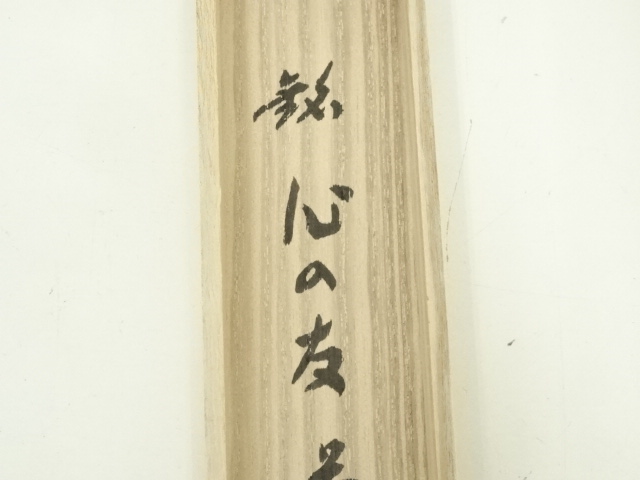 銘 心の友